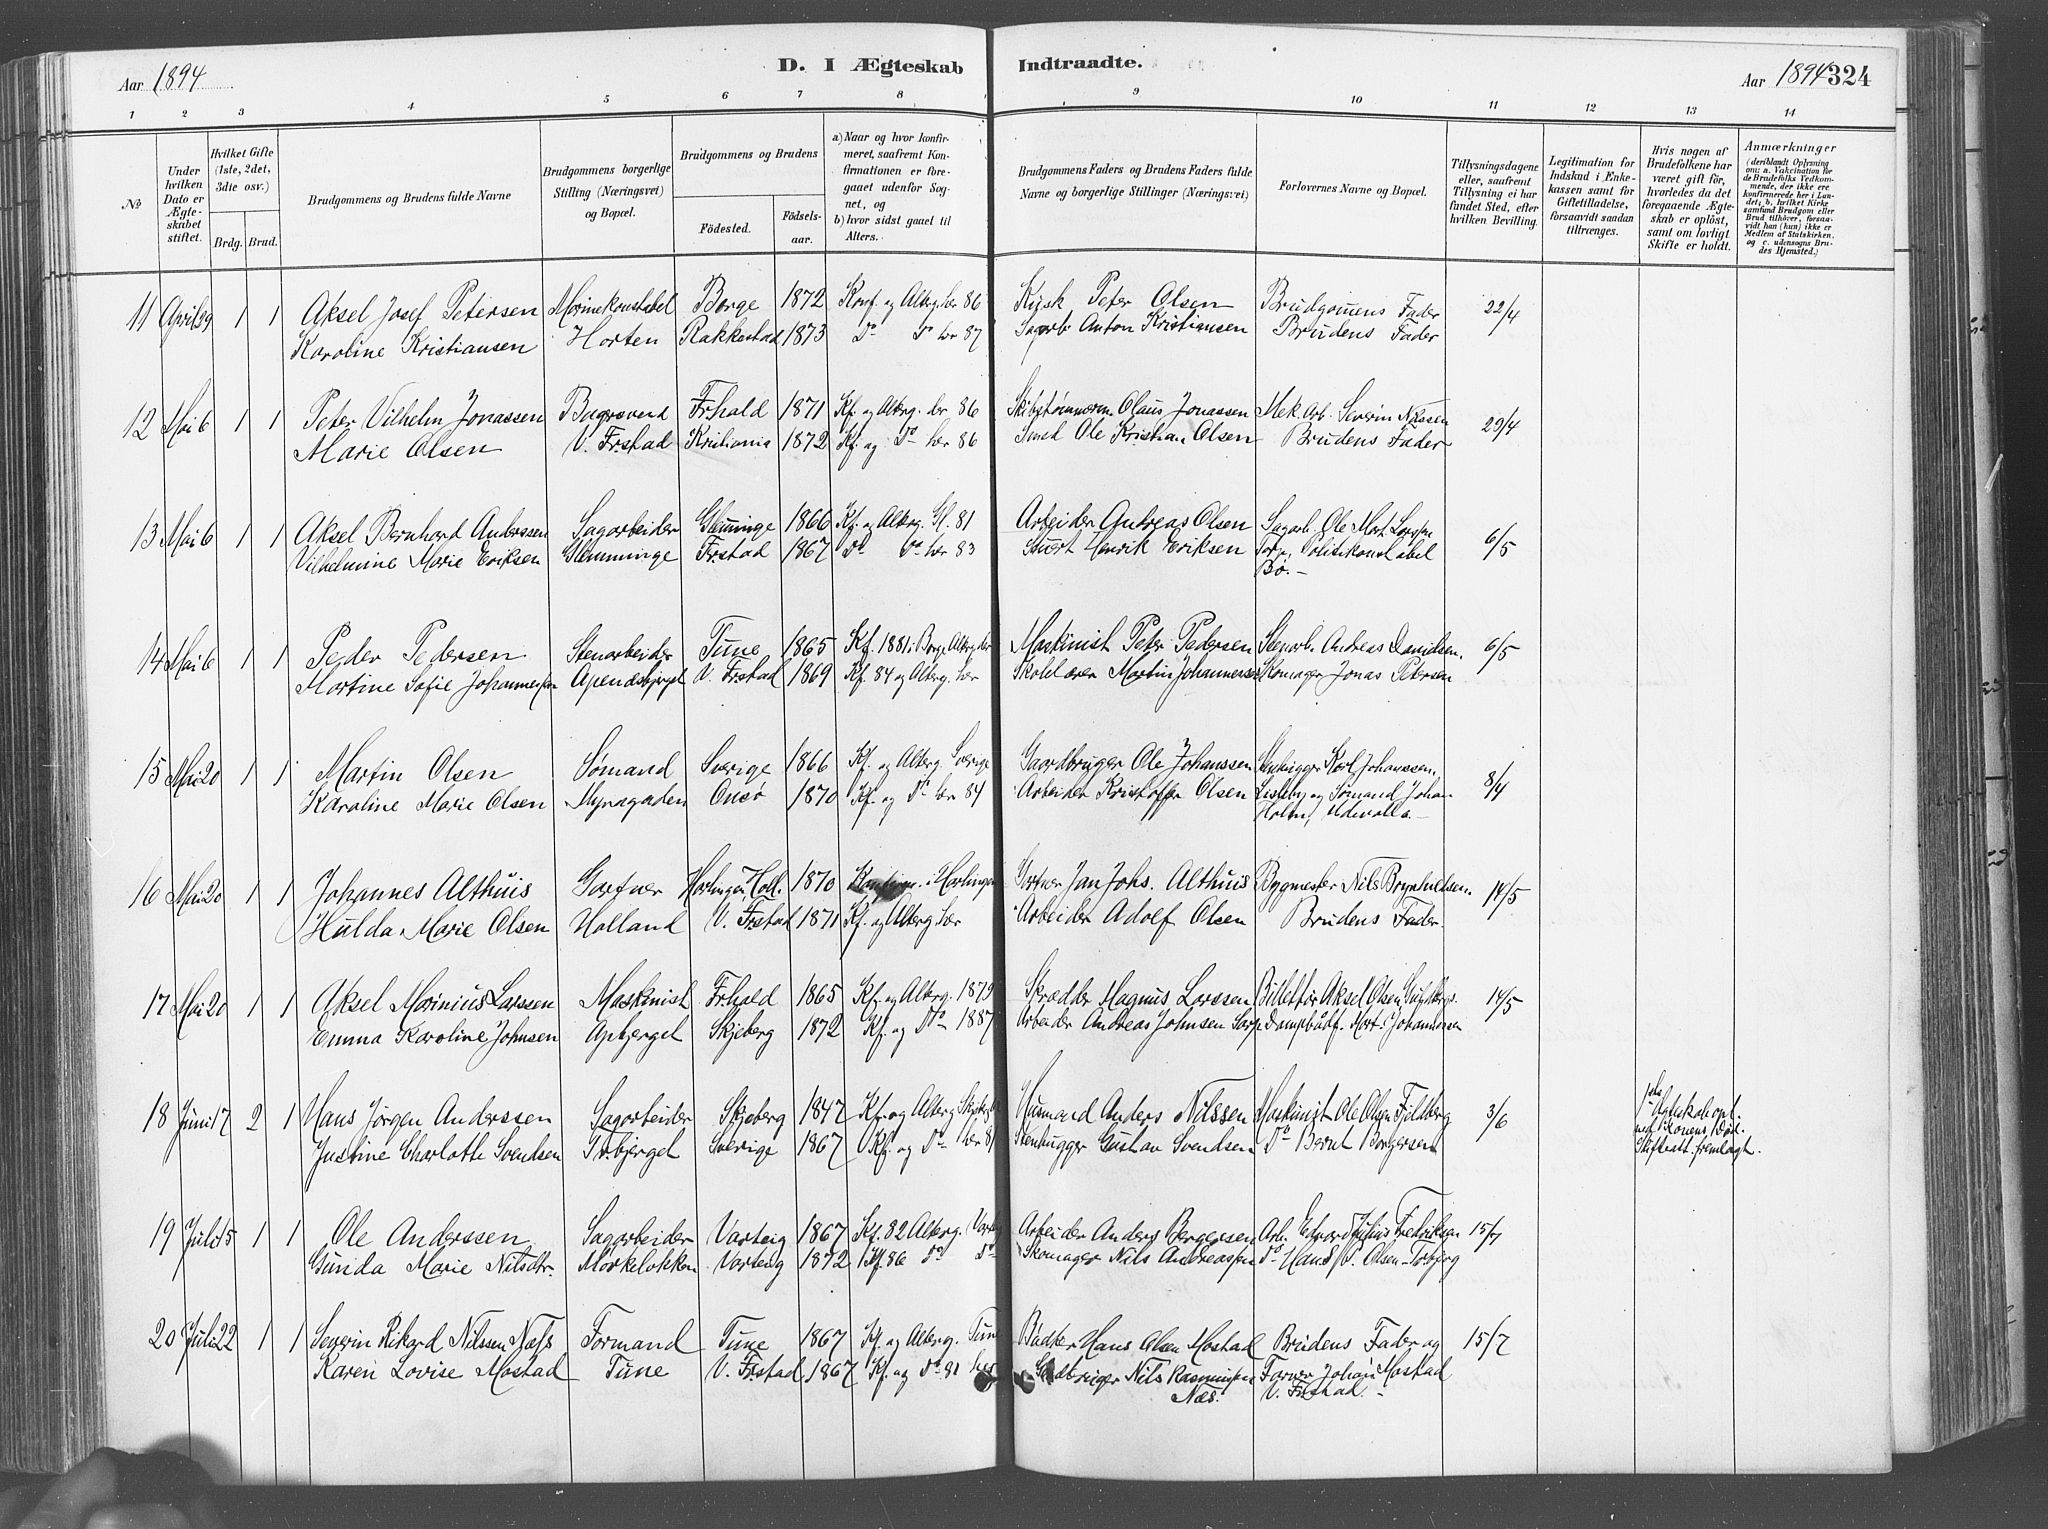 Aar 1894
D. I Ægteskab Indtraadte.
Aar 1894 324
1 2 3 4 5 6 7 8 9 10 11 12 13 14
No
Under hvilken Dato er Ægteskabet stiftet.
Hvilket Gifte (1ste, 2det, 3die osv.)
Brdg. Brud.
Brudgommens og Brudens fulde Navne
Brudgommens borgerlige Stilling (Næringsvei) og Bopæl.
Brudgommens og Brudens
Födested. Födselsaar.
a) Naar og hvor konfirmeret, saafremt Konfirmationen er foregaaet udenfor Sognet, og
b) hvor sidst gaaet til Alters.
Brudgommens Faders og Brudens Faders fulde Navne og borgerlige Stillinger (Næringsvei)
Forlovernes Navne og Bopæl.
Tillysningsdagene eller, saafremt Tillysning ei har fundet Sted, efter hvilken Bevilling.
Legitimation for Indskud i Enkekassen samt for Giftetilladelse, forsaavidt saadan tiltrænges.
Hvis nogen af Brudefolkene har været gift för, hvorledes da det foregaaende Ægteskab er oplöst, samt om lovligt Skifte er holdt.
Anmærkninger (deriblandt Oplysning om: a. Vaccination for de Brudefolks Vedkommende, der ikke ere konfirmerede her i Landet; b, hvilket Kirkesamfund Brudgom eller Brud tilhører, forsaavidt han (hun) ikke er Medlem af Statskirken. og c. udensogns Brudes Hjemsted.)
11 April 29 1 1 Aksel Josef Petersen Marinekonstabel Borge 1872 Konf. og Alterg. her 86 Kusk Peter Olsen Brudgomens Fader 22/4
Karoline Kristiansen Horten Rakkestad 1873 Do Do her 87 Anton Kristiansen Brudens Fader
12 Mai 6 1 1 Peter Vilhelm Jonassen Bagersvend Frhald 1871 Kf. og Alterg. her 86 Skibstømmerm. Olaus Jonassen Mek. Arb. Severin Nilssen 29/4
Marie Olsen V. Frstad Kristiania 1872 Kf. og Do her 86 Smed Ole Kristian Olsen Brudens Fader
13 Mai 6 1 1 Aksel Bernhard Anderssen Sagarbeider Glemminge 1866 Kf. og Alterg. Gl. 81 Arbeider Andreas Olsen Sagarb. Ole Mort. Larssen 6/5
Vilhelmine Marie Eriksen Glemminge Frstad 1867 Do Do her 83 Henrik Eriksen Torp, Politikonstabel
Bø.-
14 Mai 6 1 1 Peder Pedersen Stenarbeider Tune 1865 Kf. 1881 i Borge, Alterg. her Maskinist Peter Pedersen Stenarb. Andreas Davidsen. 6/5
Martine Sofie Johannessen Apenesbjerget V. Frstad 1869 Kf. 84 og Alterg. her Skolelærer Martin Johannessen Skomager Jonas Petersen
15 Mai 20 1 1 Martin Olsen Sømand Sverige 1866 Kf. og Alterg. Sverige Gaardbruger Ole Johanssen Stenhugger Karl Johanssen, 8/4
Karoline Marie Olsen Myragaden Onsø 1870 Kf. og Do her 84 Arbeider Kristoffer Olsen Lisleby og Sømand Johan
Holm, Udevalla.-
16 Mai 20 1 1 Johannes Althuis Gartner Harlingen, Holl. 1870 i Harlingen Gartner Jan Johs. Althuis Bygmester Nils Brynhildsen. 14/5
Hulda Marie Olsen Holland V. Frstad 1871 Kf. og Alterg. her Arbeider Adolf Olsen Brudens Fader.
17 Mai 20 1 1 Aksel Marinius Larssen Maskinist Frhald 1865 Kf. og Alterg. 1879 Skrædder Magnus Larssen Billettør Aksel Olsen 14/5
Emma Karoline Johnsen Apbjerget Skjeberg 1872 Kf. og Do 1887 Arbeider Andreas Johnsen Sarp Dampbådf. Mart. Johannessen
18 Juni 17 2 1 Hans Jørgen Anderssen Sagarbeider Skjeberg 1847 Kf. og Alterg. Skjeberg Husmand Anders Nilssen Maskinist Ole Olsen Fjeldberg 3/6 1ste Ægteskab opl.
Justine Charlotte Svendsen Torbjerget Sverige 1867 Kf. og Do her 81 Stenhugger Gustav Svendsen Do Bernt Borgersen ved Konens Død.
Skifteatt. fremlagt.
19 Juli 15 1 1 Ole Anderssen Sagarbeider Varteig 1867 Kf. 82 Alterg. Varteig Arbeider Anders Bergersen Arb. Edvard Julius Fredriksen 15/7
Gunda Marie Nilsdtr. Mørkeløkken Varteig 1872 Kf. 86 Do Do Skomager Nils Andreassen Do Hans P. Olsen-Torbjerg
20 Juli 22 1 1 Severin Rikard Nilssen Næss Formand Tune 1867 Kf. og Alterg. Tune Bødker Hans Olsen Mostad Brudens Fader og 15/7
Karen Lovise Mostad Tune V. Frstad 1867 Kf. og Do 81 her Gaardbruger Nils Rasmussen Johan Mostad
Næs. V. Frstad.-